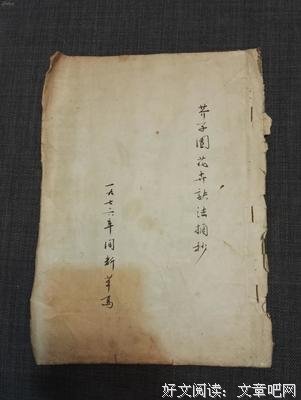 芥子園花卉訣法摘抄
一九七六年闰新羊马
好文阅读：文章吧网